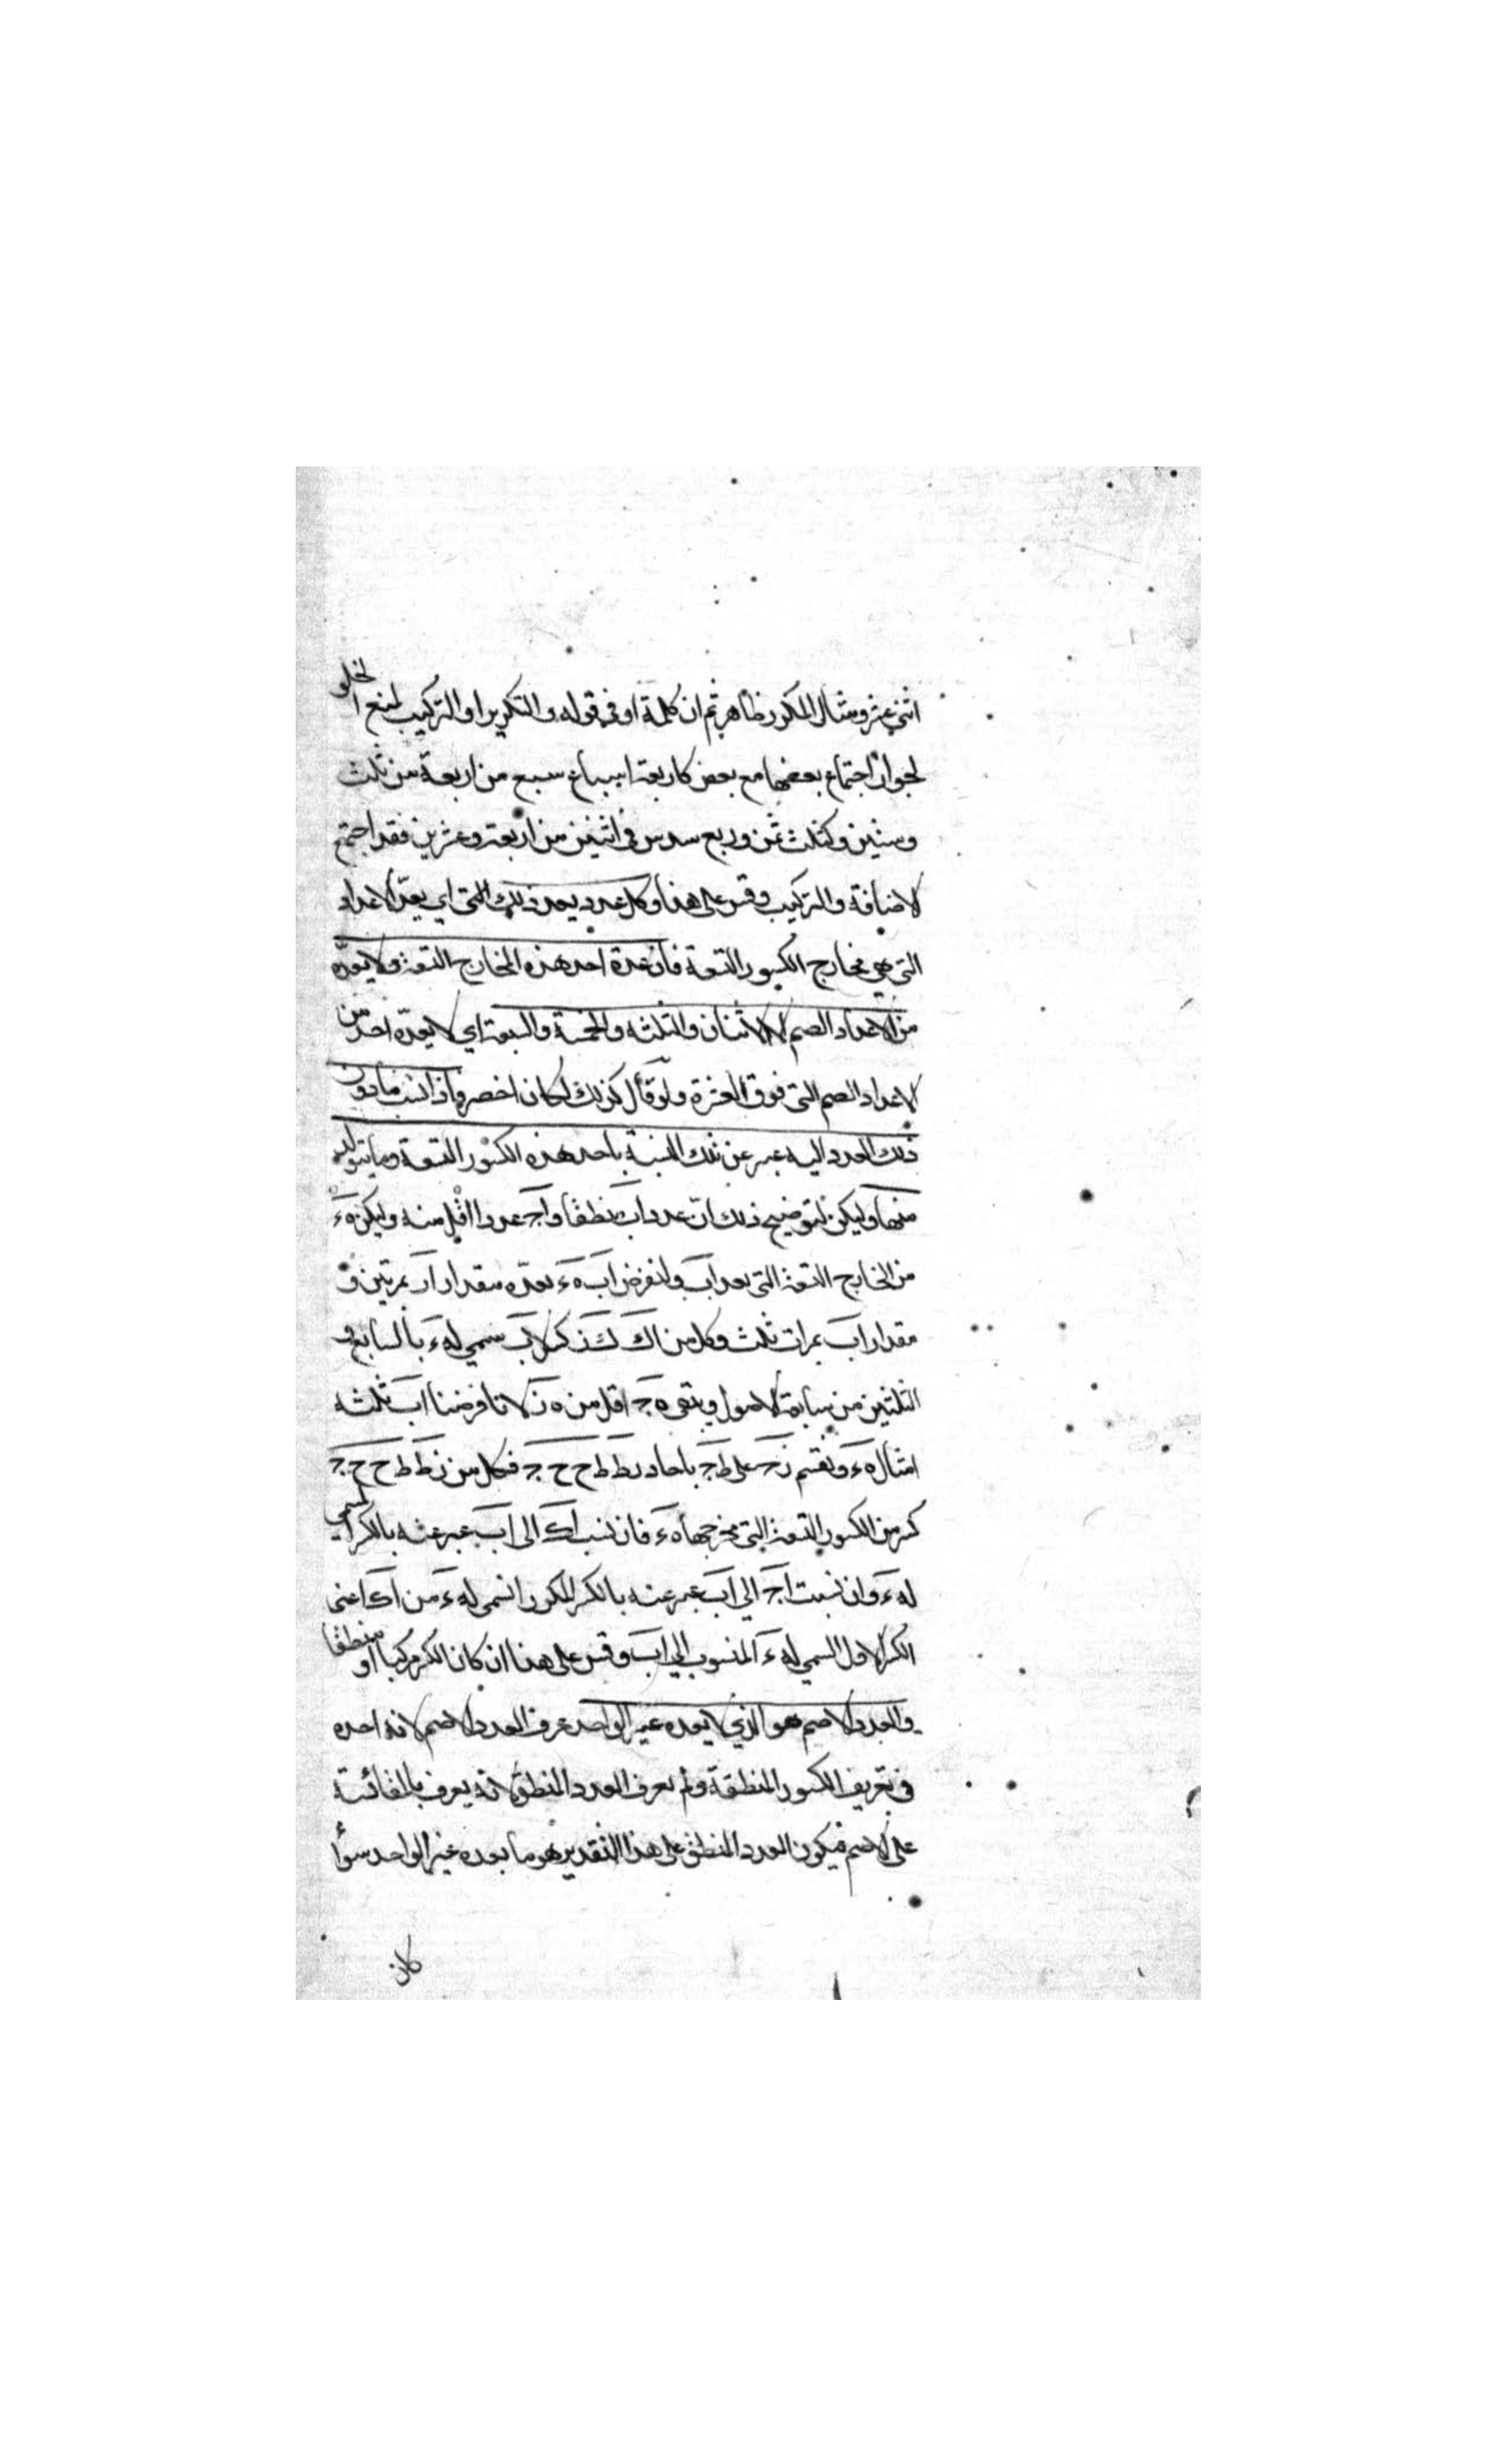 اثنى عشر ومثال المكرر ظاهر ثم ان كلمة او في قوله والتكرير او التركيب لمنع الخلو
لجواز اجتماع بعضها مع بعض كاربعة اسباع سبع من اربعة من ثلث
وستين وكثلث ثمن وربع سدس في اثنين من اربعة وعشرين فقد اجتمع
الاضافة والتركيب وقس على هذا وكل عدد يعد ذلك التي اي يعدّ الاعداد
التي هي مخارج الكسور التسعة فان عدة احد هذه المخارج التسعة ولا يعدّه
من الاعداد الصم الا الاثنان والثلثه والخمسة والسبعة اي لا يعدّه احد من
الاعداد الصم التي فوق العشرة ولو قال كذلك لكان اخصر واذا نسب ما دون
ذلك العدد اليه عبر عن تلك النسبة باحد هذه الكسور التسعة وما يتولد
منها وليكن لتوضيح ذلك انّ عدد اب منطقا و اج عددا اقل منه وليكن ه ء
من المخارج التسعة التي تعد اب ولنفرض اب ه ء يعدّه مقدار ار بمرتين و
مقدار اب بمرات ثلث وكل من اك ك ز كسر لاب سمي له ء بالسابع و
الثلثين من سابعة الاصول ويبقى ه ج اقل من ه ز لانا فرضنا اب ثلثه
امثال ه ء ونقسم زج على ط ج باحاد زط ط ح ح ج فكل من زط ط ح ح ج
كسر من الكسور التسعة التي مخرجها ه ء فان نسب اك الى اب عبر عنه بالكسر السمي
له ء وان نسبت اج الى اب عبر عنه بالكسر المكرر السمى له ء من اك اعنى
الكسر الاول السمي له ء المنسوب الى اب وقس على هذا ان كان الكسر مركبا او منطقا
والعدد الاصم هو الذي لا يعده غير الواحد عرف العدد الاصم لانه اخده
في تعريف الكسور المنطقة ولم يعرف العدد المنطق لانه يعرف بالمقائسة
على الاصم فيكون العدد المنطق على هذا التقدير هو ما يعده غير الواحد سوأ
كان